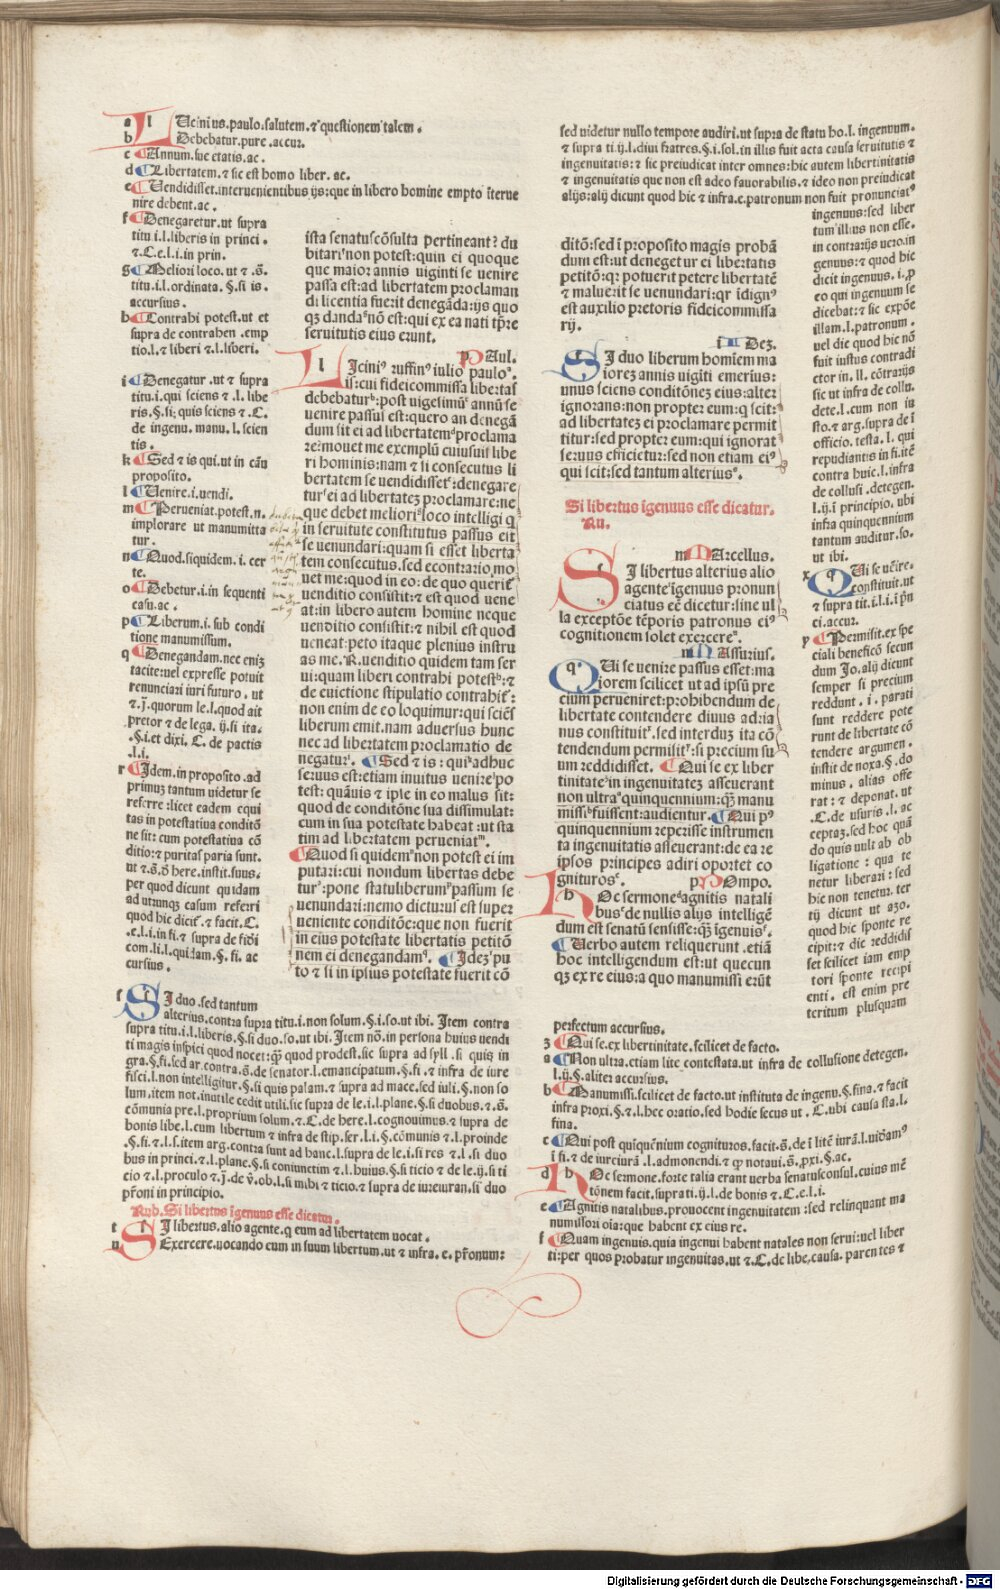 a Licinius.paulo:salutem.⁊ questionem talem.
b Debebatur.pure.accur.
c Annum.sue etatis.ac.
d Libertatem.⁊ sic est homo liber. ac.
e Vendidisset.interuenientibus ijs:que in libero homine empto īterue
nire debent.ac.
f Denegaretur.ut supra
titu i.l.liberis in princi.
⁊.C.e.l.i.in prin.
g Meliori loco.ut ⁊ .s̄.
titu.i.l.ordinata. §.si is.
accursius.
h Contrahi potest.ut et
supra de contrahen .emp
tio.l.⁊ liberi ⁊.l.liberi.
i Denegatur .ut ⁊ supra
titu.i.qui sciens ⁊ .l. libe
ris.§.si; quis sciens ⁊ .C.
de ingenu. manu.l.scien
tis.
k Sed ⁊ is qui.ut in cāu
proposito.
l Uenire.i.uendi.
m Perueniat.potest.n.
implorare ut manumitta
tur.
n Quod.siquidem.i. cer
te.
o Debetur.i.in sequenti
casu.ac.
p Liberum.i. sub condi
tione manumissum.
q Denegandam.nec enim
tacite:uel expresse potuit
renunciari iuri futuro. ut
⁊.j̄.quorum le.l.quod ait
pretor ⁊ de lega. ij.si ita.
.§.i.et dixi. C. de pactis
.l.i.
r Idem.in proposito.ad
primum tantum uidetur se
referre:licet eadem equi
tas in potestatiua conditō
ne sit: cum potestatiua cō
ditio:⁊ puritas paria sunt.
ut ⁊.s̄.d̄ here.instit.suus.
per quod dicunt quidam
ad utrunque casum referri
quod hic dicit.⁊ facit.C.
.e.l.i.in fi.⁊ supra de fidei
com.li.l.quidam.§.fi. ac
cursius.
ista senatuscōsulta pertineant? du
bitari non potest:quin ei quoque
que maior annis uiginti se uenire
passa est:ad libertatem proclaman
di licentia fuerit denegāda:ijs quo
que danda non est:qui ex ea nati tp̄re
seruitutis eius erunt.
pAul.
LIcini⁹ ruffin⁹ iulio paulo a.
is:cui fideicommissa libertas
debebatur b:post uigesimū c annū se
uenire passus est:quero an denegā
dum sit ei ad libertatem d proclama
re:mouet me exemplū cuiusuis libe
ri hominis:nam ⁊ si consecutus li
bertatem se uendidisset e:denegare
tur f ei ad libertatem proclamare:ne
que debet meliori g loco intelligi q
in seruitute constitutus passus est
se uenundari:quam si esset liberta
tem consecutus.sed econtrario mo
uet me:quod in eo: de quo querit
uenditio consistit:⁊ est quod uene
at:in libero autem homine neque
uenditio consistit:⁊ nihil est quod
ueneat.peto itaque plenius instru
as me.R.uenditio quidem tam ser
ui:quam liberi contrahi potest h:⁊
de euictione stipulatio contrahit̄:
non enim de eo loquimur:qui sciēs
liberum emit.nam aduersus hunc
nec ad libertatem proclamatio de
negatur i. Sed ⁊ is k:qui adhuc
seruus est:etiam inuitus uenire l po
test:quāuis ⁊ ipse in eo malus sit:
quod de conditōne sua dissimulat:
cum in sua potestate habeat:ut sta
tim ad libertatem perueniat m.
Quod si quidem n non potest ei im
putari:cui nondum libertas debe
tur o:pone statuliberum p passum se
uenundari:nemo dicturus est super
ueniente conditōe:que non fuerit
in eius potestate libertatis petitō
nem ei denegandam q. Idem r pu
to ⁊ si in ipsius potestate fuerit cō
s SI duo.sed tantum
alterius.contra supra titu.i.non solum.§.i.so.ut ibi. Item contra
supra titu.i.l.liberis.§.si duo.so.ut ibi. Item nō.in persona huius uendi
ti magis inspici quod nocet:q̄ quod prodest.sic supra ad syll .si quis in
gra.§.fi.sed ar.contra.s̄.de senator.l.emancipatum.§.fi.⁊ infra de iure
fisci.l.non intelligitur.§.si quis palam.⁊ supra ad mace.sed iuli.§.non so
lum.item not.inutile cedit utili.sic supra de le.i.l.plane.§.si duobus.⁊.s̄.
cōmunia pre.l.proprium solum.⁊.C.de here.l.cognouimus.⁊ supra de
bonis libe.l.cum libertum ⁊ infra de stip.ser.l.i.§.cōmunis ⁊.l.proinde
.§.fi.⁊.l.s.item arg.contra sunt ad hanc.l.supra de le.i.si res ⁊.l.si duo
bus in princi.⁊.l.plane.§.si coniunctim ⁊.l.huius.§.si ticio ⁊ de le.ij.si ti
cio ⁊.l.proculo ⁊.j̄.de v̄.ob.l.si mihi ⁊ ticio.⁊ supra de iureiuran.si duo
pr̄oni in principio.
Rub. Si libertus ingenuus esse dicatur.
t SI libertus.alio agente.q eum ad libertatem uocat.
u Exercere.uocando eum in suum libertum.ut ⁊ infra.e. pr̄onum:
sed uidetur nullo tempore audiri.ut supra de statu ho.l. ingenuum.
⁊ supra ti.ij.l.diui fratres.§.i.sol.in illis fuit acta causa seruitutis ⁊
ingenuitatis:⁊ sic preiudicat inter omnes:hic autem libertinitatis
⁊ ingenuitatis que non est adeo fauorabilis.⁊ ideo non preiudicat
alijs:alij dicunt quod hic ⁊ infra.e.patronum non fuit pronunciat⁹
ingenuus:sed liber
tum illius non esse.
in contrarijs uero.in
genuus:⁊ quod hic
dicit ingenuus.i.p̄
eo qui ingenuum se
dicebat:⁊ sic expōe
illam.l.patronum.
uel die quod hic nō
fuit iustus contradi
ctor in. ll. cōtrarijs
sic ut infra de collu.
dete.l. cum non iu
sto.⁊ arg.supra de ī
officio. testa.l. qui
repudiantis in fi.itē
contra huic.l.infra
de collusi .detegen.
l.ij.ī principio. ubi
infra quinquennium
tantum auditur.so.
ut ibi.
ditō:sed ī proposito magis probā
dum est:ut denegetur ei libertatis
petitō:qr potuerit petere libertatē
⁊ maluerit se uenundari:qr īdign⁹
est auxilio pretoris fideicommissa
rij.
iDem.
SI duo liberum homīem ma
iorem annis uigīti emerint:
unus sciens conditōnem eius:alter
ignorans:non propter eum:q scit:
ad libertatem ei proclamare permit
titur:sed propter eum:qui ignorat
seruus efficietur:sed non etiam ei⁹
qui scit:sed tantum alterius s.
Si libertus īgenuus esse dicatur.
Ru.
mArcellus.
SI libertus alterius alio
agente t īgenuus pronun
ciatus eē dicetur:sine ul
la exceptōe tēporis patronus ei⁹
cognitionem solet exercere u.
mAssurius.
QUi se uenire passus esset:ma
iorem scilicet ut ad ipsū pre
cium perueniret:prohibendum de
libertate contendere diuus adria
nus constituit x.sed interdum ita cō
tendendum permisit y:si precium su
um reddidisset. Qui se ex liber
tinitate z in ingenuitatem asseuerant
non ultra a quinquennium:q̄ manu
missi b fuissent:audientur. Qui p⁹
quinquennium reperisse instrumen
ta ingenuitatis asseuerant:de ea re
ipsos principes adiri oportet co
gnituros c.
pOmpo.
HOc sermone d agnitis natali
bus e de nullis alijs intelligē
dum est senatū sensisse:q̄ īgenuis f.
Uerbo autem reliquerunt .etiā
hoc intelligendum est:ut quecun
que ex re eius:a quo manumissi erūt
x QUi se uēire.
constituit.ut
⁊ supra tit.i.l.i.ī pn̄
ci.accur.
y Permisit.ex spe
ciali beneficō secun
dum Jo.alij dicunt
semper si precium
reddunt. i. parati
sunt reddere pote
runt de libertate cō
tendere argumen.
instit de noxa.§.do
minus . alias offe
rat: ⁊ deponat.ut
.C.de usuris.l. ac
ceptam.sed hoc quā
do quis uult ab ob
ligatione : qua te
netur liberari: sed
hic non tenetur. ter
tij dicunt ut azo.
quod hic sponte re
cipit:⁊ die reddidis
set scilicet iam emp
tori sponte recipi
enti. est enim pre
teritum plusquam
perfectum accursius.
z Qui se.ex libertinitate.scilicet de facto.
a Non ultra.etiam lite contestata.ut infra de collusione detegen.
l.ij.§.aliter accursius.
b Manumissi.scilicet de facto.ut instituta de ingenu.§.fina.⁊ facit
infra proxi.§.⁊.l.hec oratio.sed hodie secus ut . C.ubi causa sta.l.
fina.
c Qui post quīquēnium cognituros.facit.s̄.de ī litē iurā.l.uidām⁹
ī fi.⁊ de iureiurā .l.admonendi.⁊ qp notaui.s̄.proxi.§.ac.
d HOc sermone.forte talia erant uerba senatusconsul.cuius mē
tōnem facit.supra ti.ij.l.de bonis ⁊.C.e.l.i.
e Agnitis natalibus.prouocent ingenuitatem :sed relinquant ma
numissori oīa:que habent ex eius re.
f Quam ingenuis.quia ingenui habent natales non serui:uel liber
ti:per quos probatur ingenuitas.ut ⁊.C.de libe.causa.parentes ⁊
Digitalisierung gefördert durch die Deutsche Forschungsgemeinschaft - DFG